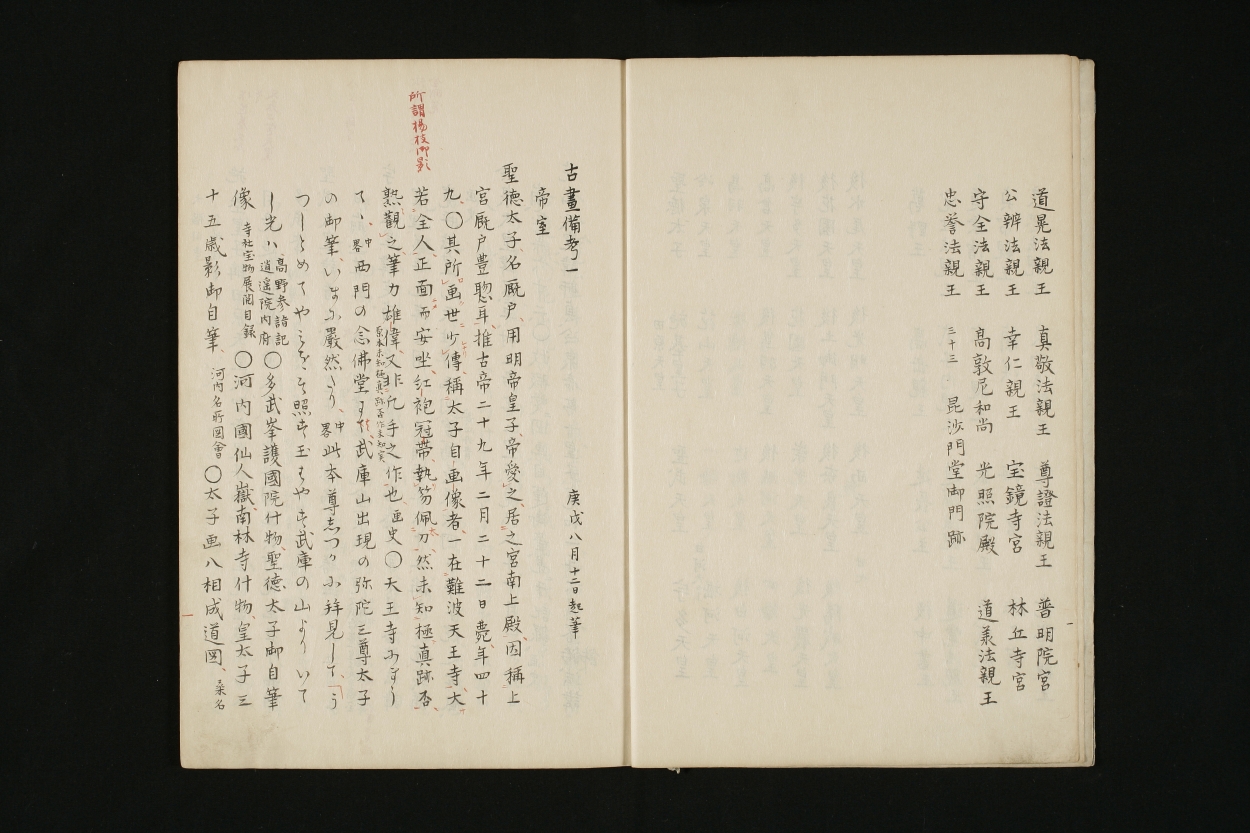 道晃法親王　真敬法親王　尊證法親王　普明院宮
公辨法親王　幸仁親王　宝鏡寺宮　林丘寺宮
守全法親王　高敦尼和尚　光照院殿　道羕法親王
忠誉法親王　三十三　毘沙門堂御門跡
古畫備考一　庚戌八月十二日起筆
帝室
聖徳太子名厩戸、用明帝皇子、帝愛之、居之宮南上殿、因稱上
宮厩戸豊聡耳、推古帝二十九年二月二十二日薨、年四十
九、〇其所画世少傳、稱太子自画像者、一在難波天王寺、大
所謂楊枝御影
若全人、正面而安坐、紅袍冠帯執笏佩刀、然未知極真跡否、
熟觀之筆力雄偉、又非凡手之作也画史〇天王寺
て、中畧西門の念佛堂武庫山出現の弥陀三尊太子
の御筆、いま嚴然たり、中畧此本尊志つかに拝見して、う
つしとめてや照す玉はや武庫の山よりいて
し光ハ、高野参詣記逍遥院内府〇多武峯護國院什物、聖徳太子御自筆
像　幸社宝物展閲目録〇河内國仙人嶽南林寺什物、皇太子三
十五歳影御自筆、河内名所図會〇太子画八相成道図、桑名